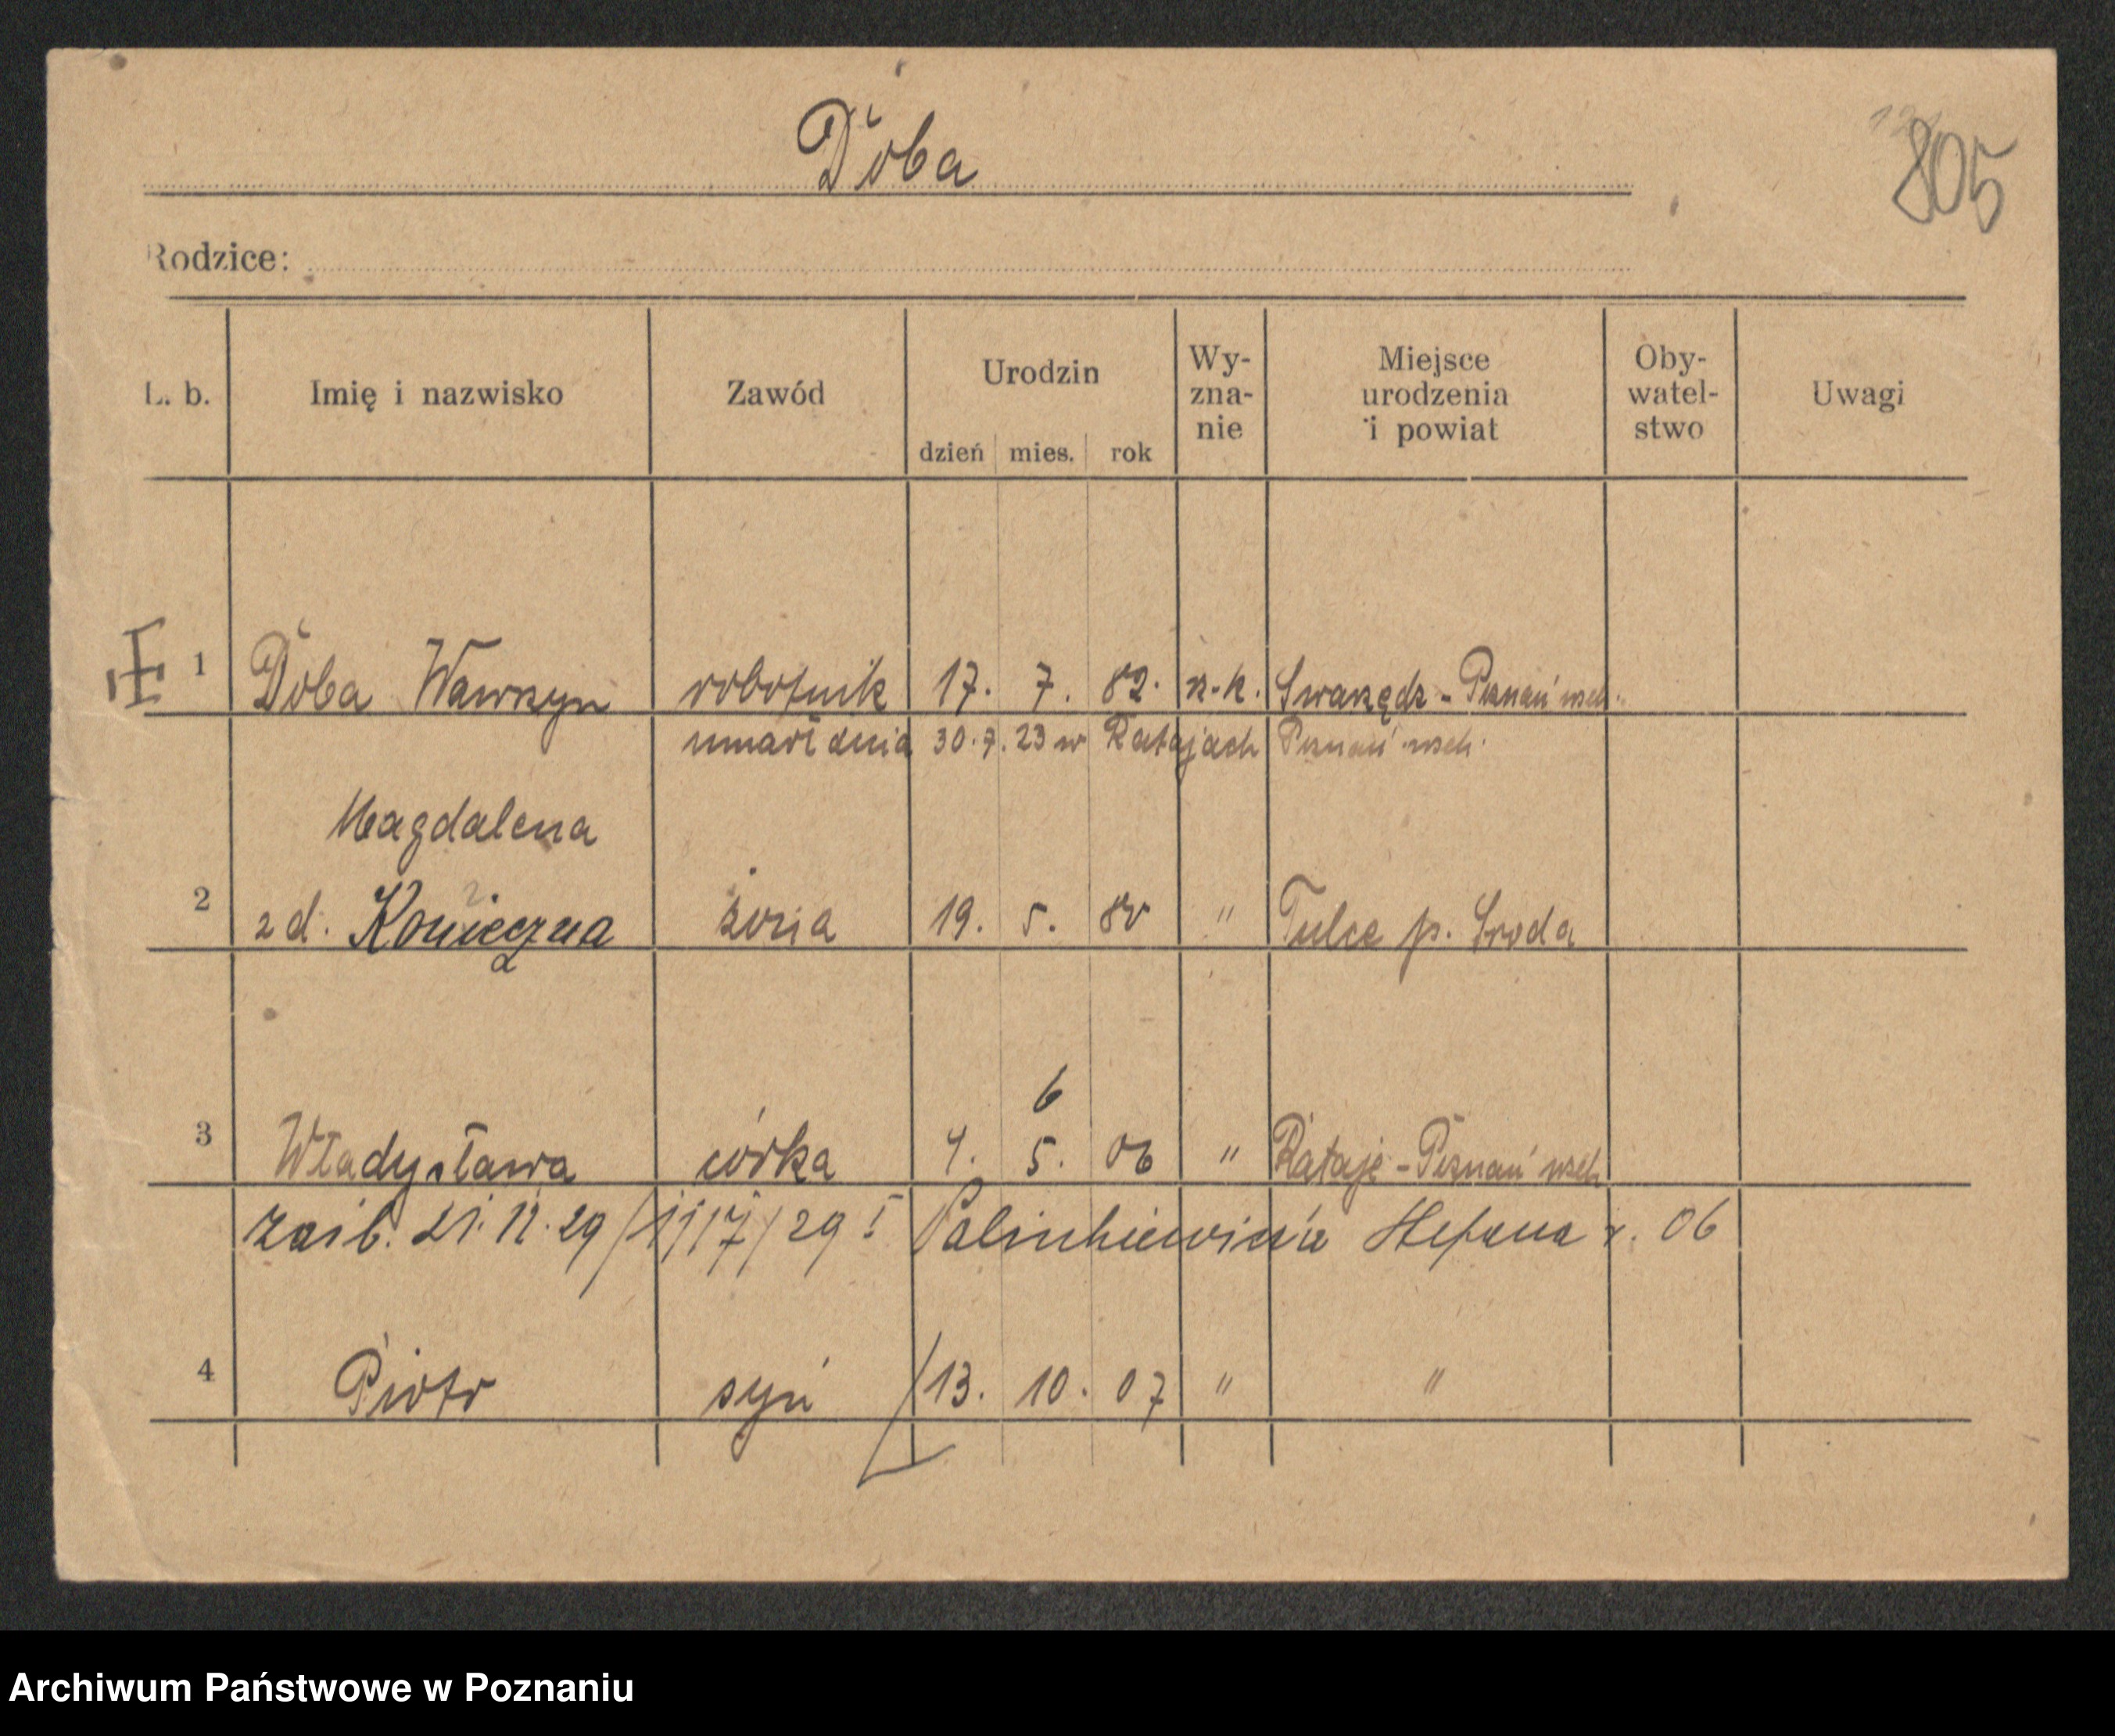 Doba
805
Rodzice:
L. b. Imię i nazwisko Zawód Urodzin dzień mies. rok Wy-zna-nie Miejsce urodzenia i powiat Oby-watel-stwo Uwagi
1 Doba Wawrzyn robotnik 17. 7. 82. rz.-k. Swarzędz - Poznań wsch.
umarł dnia 30.7.23 w Ratajach Poznań wsch.
Magdalena
2 z d. Konieczna żona 19. 5. 80 " Tulce p. Środa
6
3 Władysława córka 4. 5. 06 " Rataje - Poznań wsch
zaśl. 21. 11. 29 29 Stefana r. 06
4 Piotr syn 13. 10. 07 " "
Archiwum Państwowe w Poznaniu